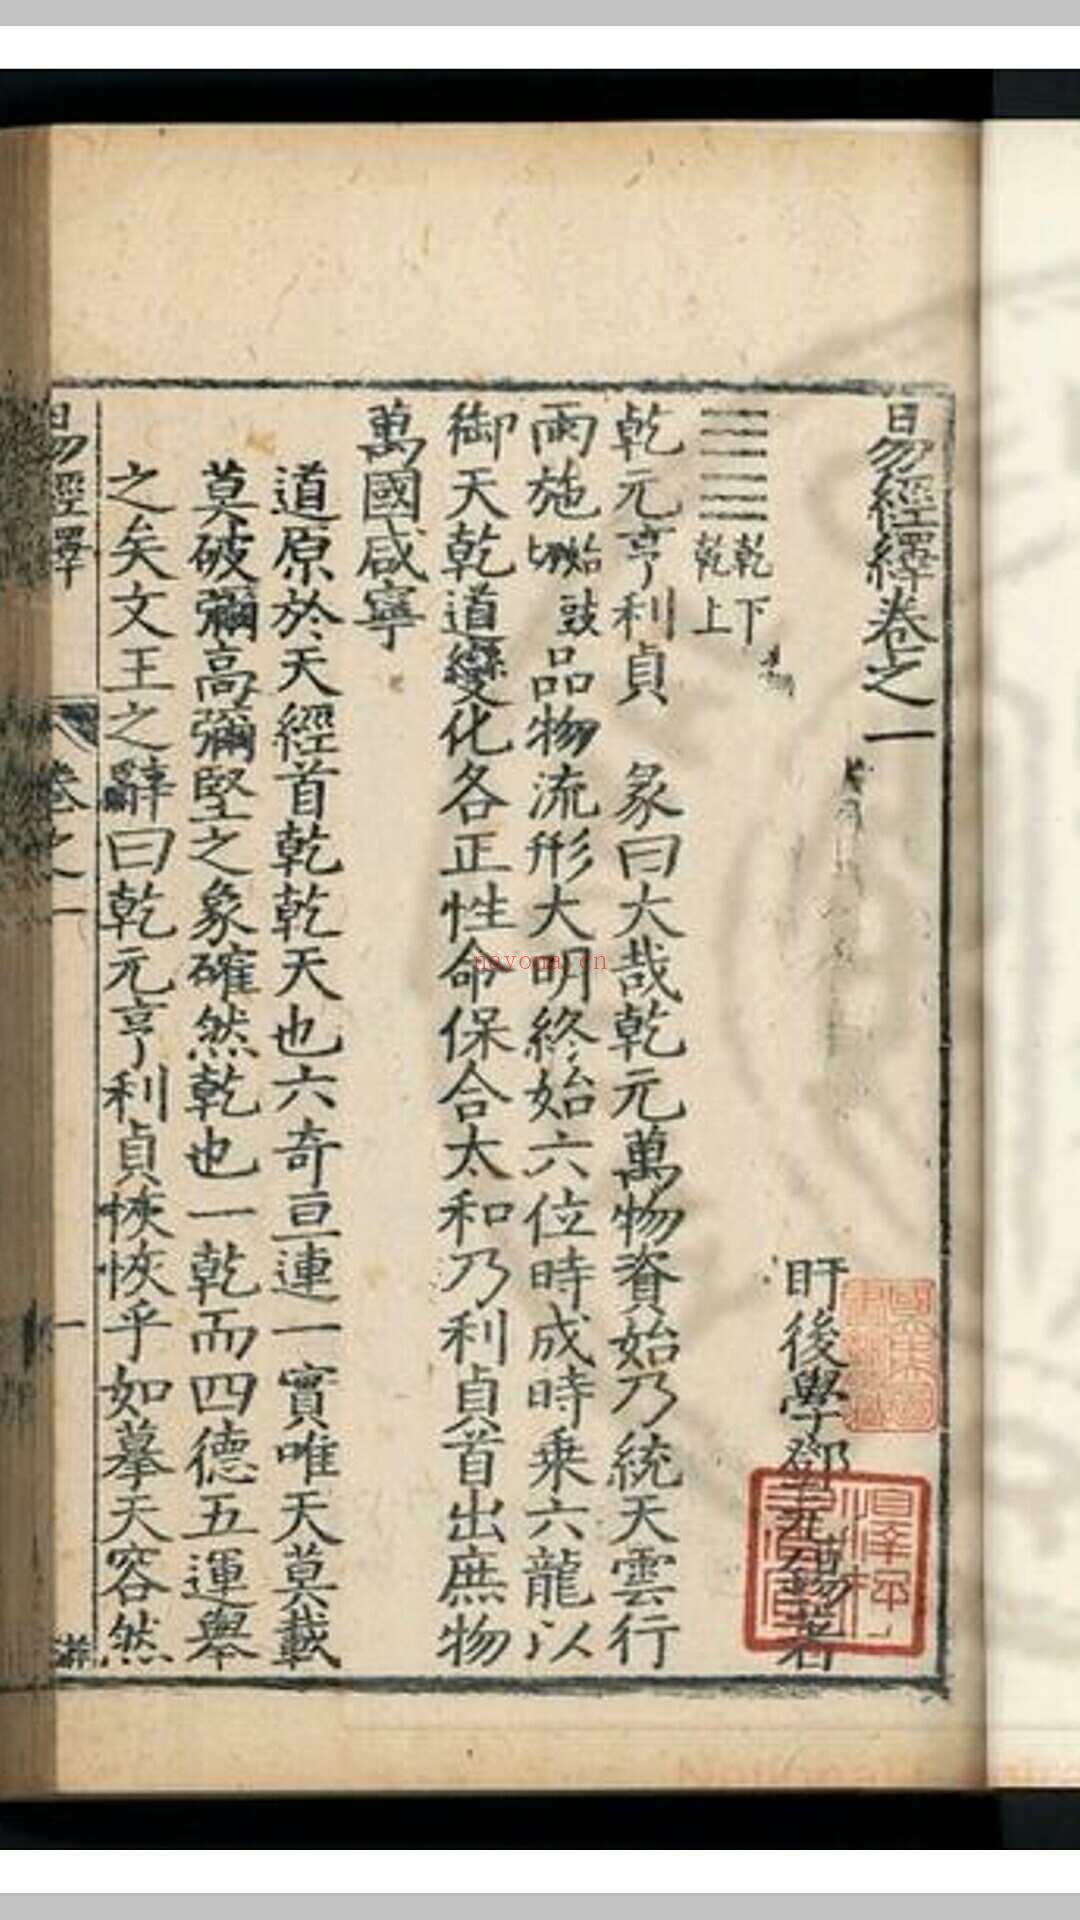 易經繹卷之一
盱後學鄧元錫著
乾下
乾上
乾元亨利貞 彖曰大哉乾元萬物資始乃統天雲行
雨施始豉切品物流形大明終始六位時成時乘六龍以
御天乾道變化各正性命保合太和乃利貞首出庶物
萬國咸寧
道原於天經首乾乾天也六奇亘連一實唯天莫載
莫破彌高彌堅之象確然乾也一乾而四德五運舉
之矣文王之辭曰乾元亨利貞恢恢乎如摹天容然
易經繹
卷之一
一
nnyona.cn